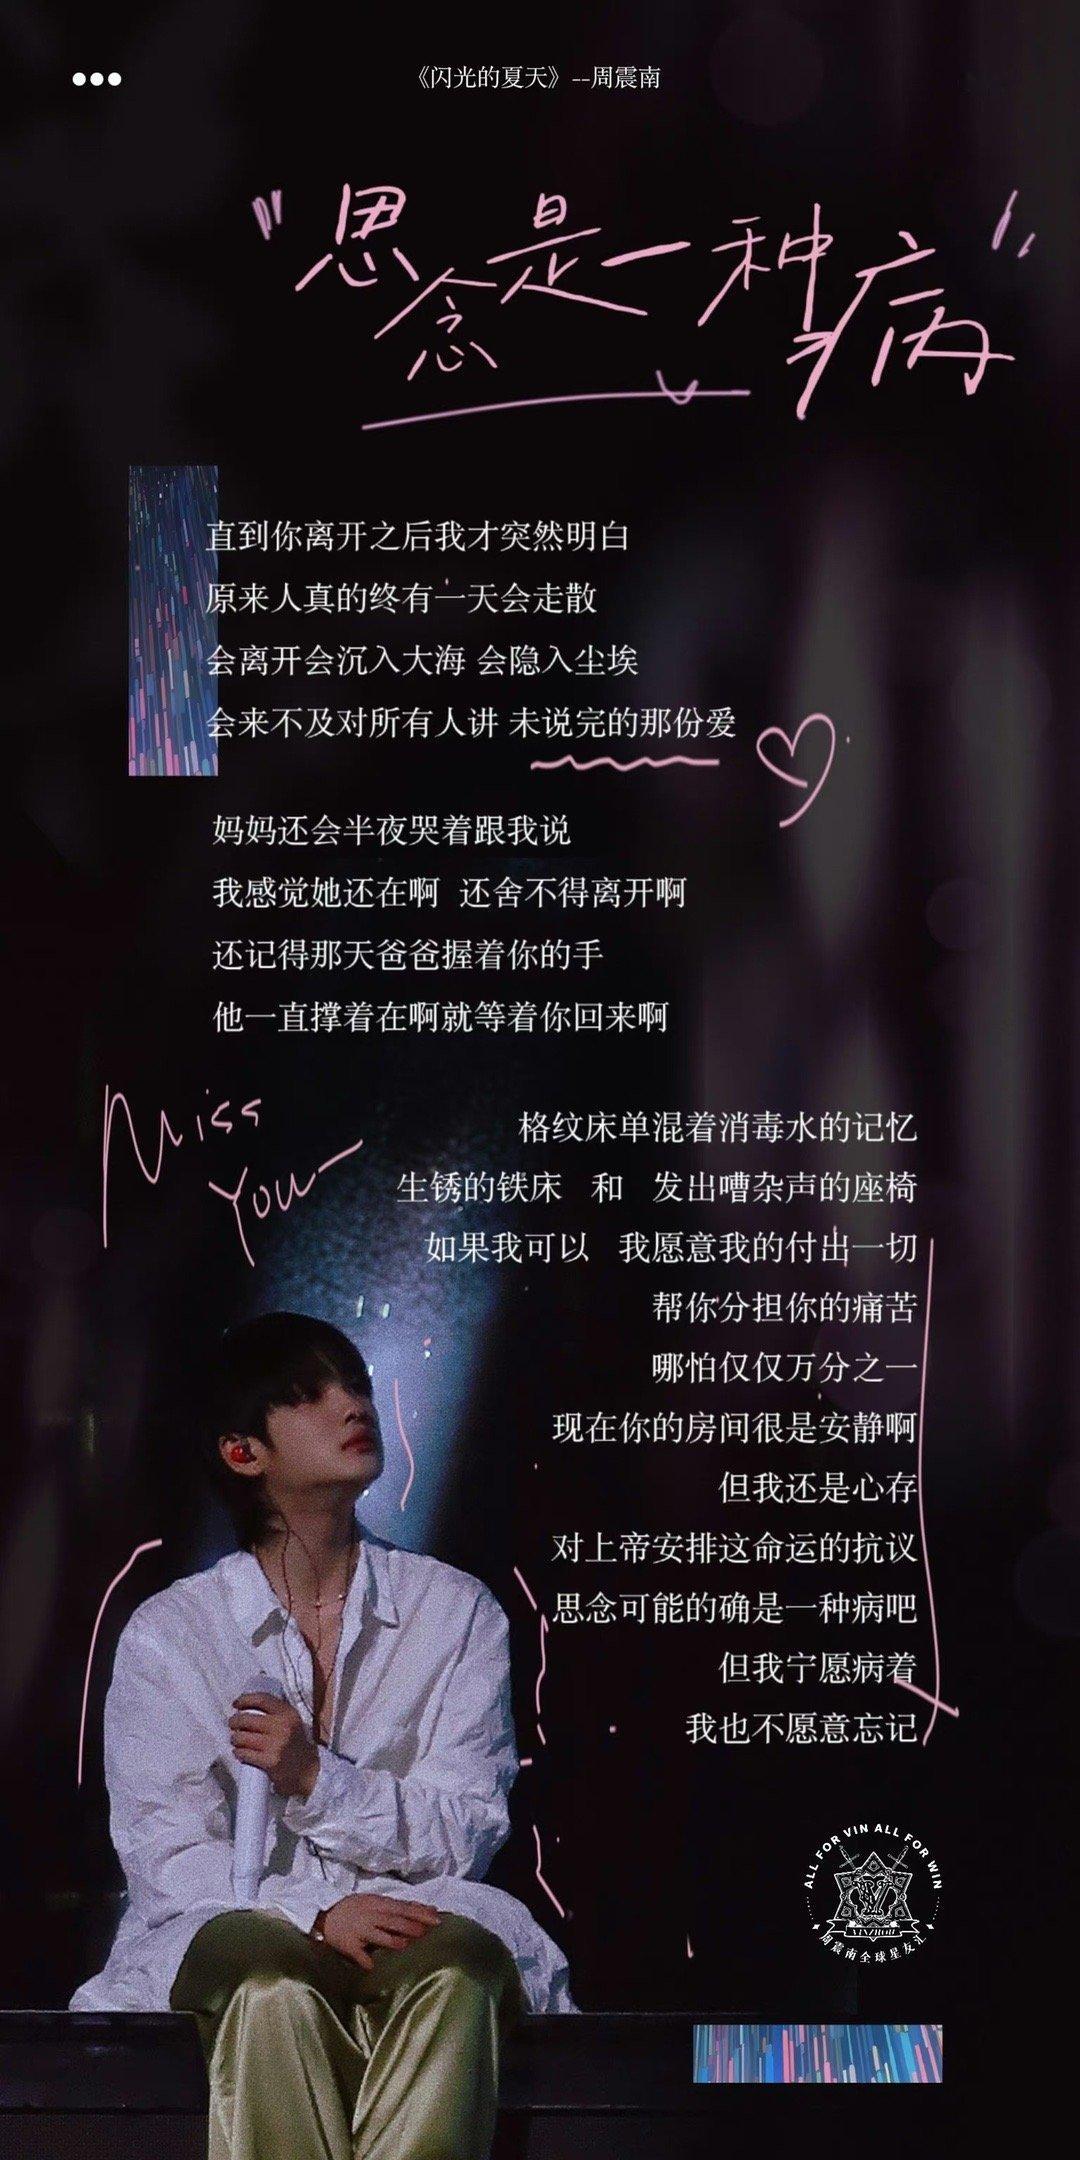 《闪光的夏天》--周震南
"思念是一种病"
直到你离开之后我才突然明白
原来人真的终有一天会走散
会离开会沉入大海 会隐入尘埃
会来不及对所有人讲 未说完的那份爱
妈妈还会半夜哭着跟我说
我感觉她还在啊 还舍不得离开啊
还记得那天爸爸握着你的手
他一直撑着在啊就等着你回来啊
Miss
You
格纹床单混着消毒水的记忆
生锈的铁床 和 发出嘈杂声的座椅
如果我可以 我愿意我的付出一切
帮你分担你的痛苦
哪怕仅仅万分之一
现在你的房间很是安静啊
但我还是心存
对上帝安排这命运的抗议
思念可能的确是一种病吧
但我宁愿病着
我也不愿意忘记
ALL FOR VIN ALL FOR WIN
VINZHOU
周震南全球星友汇